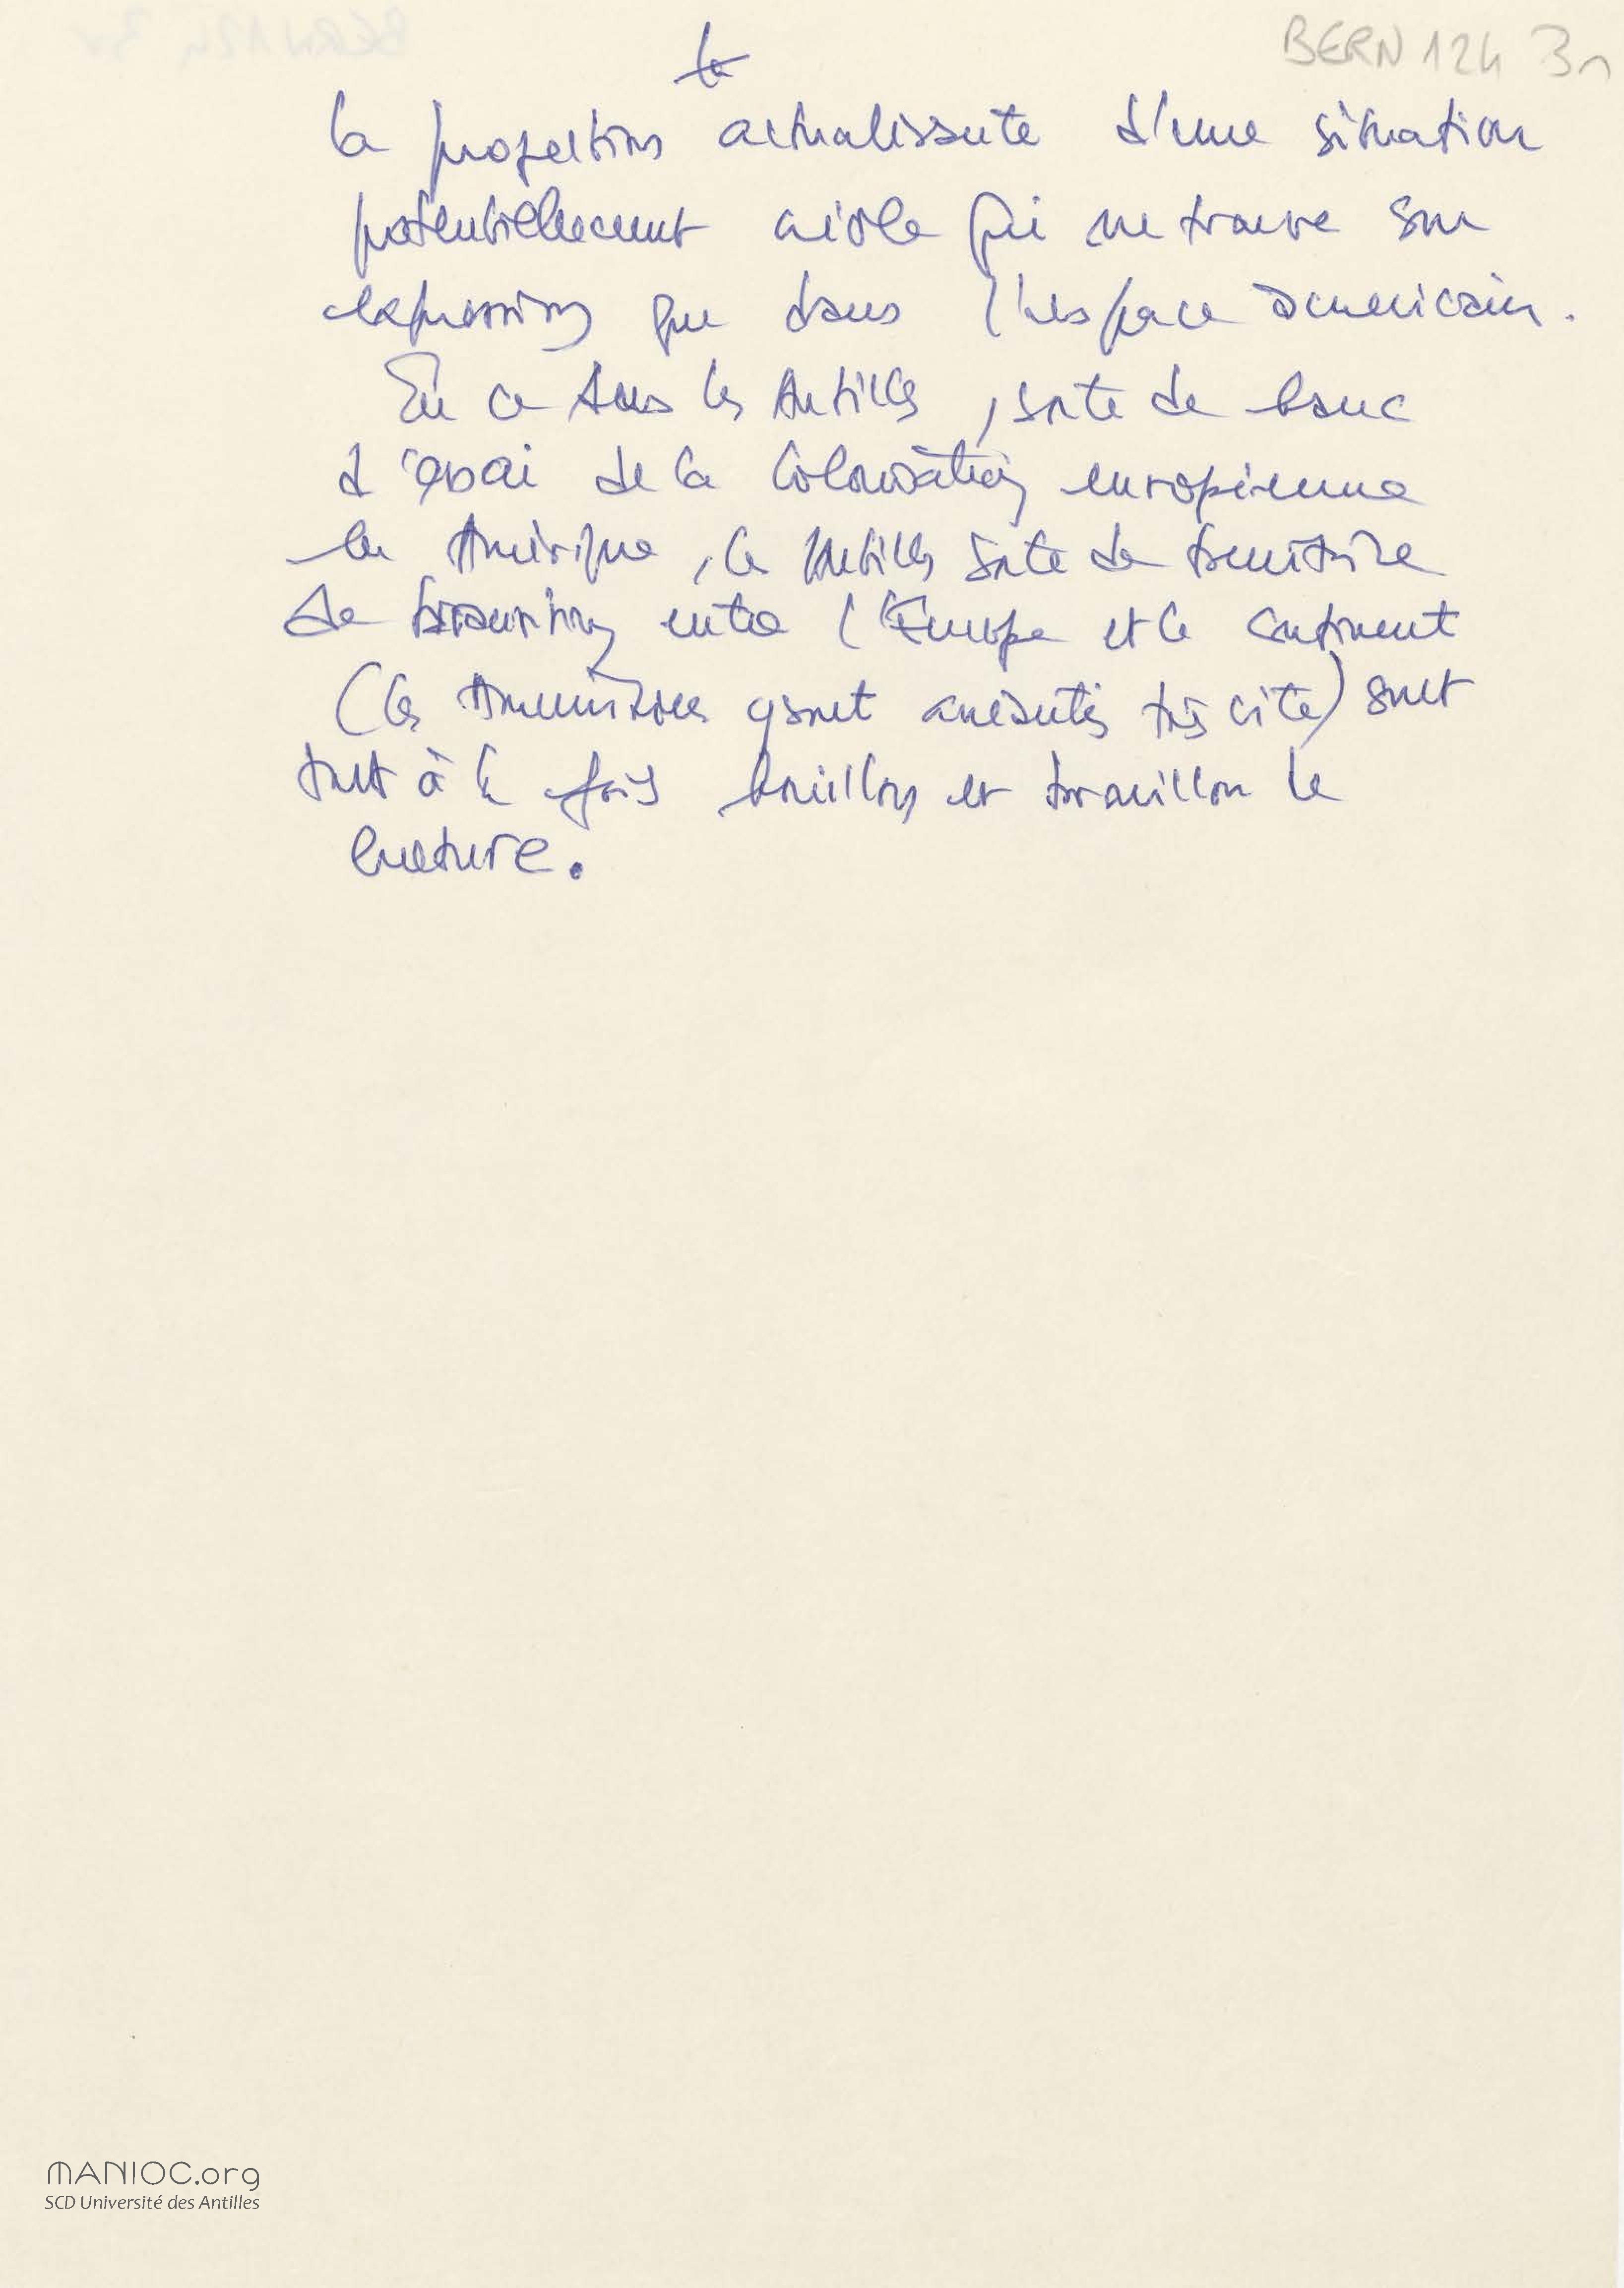 BERN 124 3r
la
la projection actualissante d'une situation
potentiellement créole qui ne trouve son
expression que dans l'espace américain.
En ce sens les Antilles, sorte de banc
d'essai de la Colonisation européenne
en Amérique, les Antilles sorte de territoire
de transition entre l'Europe et le continent
(les Amérindiens y sont anéantis très vite) sont
tout à la fois bouillon et brouillon de
culture.
MANIOC.org
SCD Université des Antilles